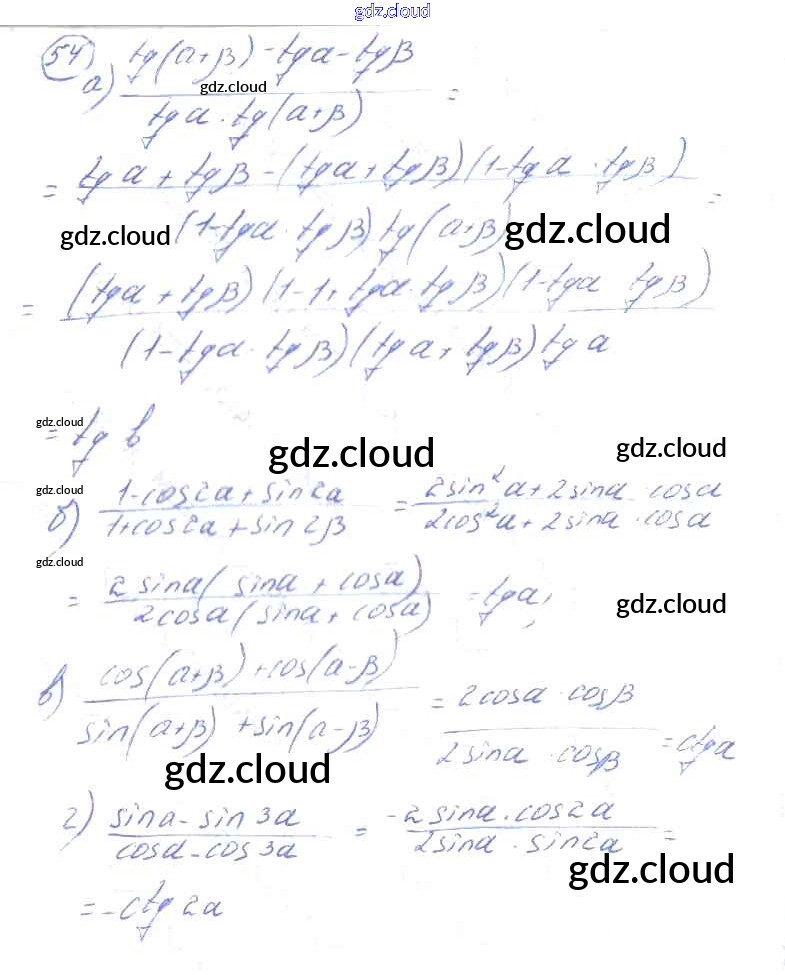 gdz.cloud
54) а) (tg(α+β) - tgα - tgβ) / (tgα · tg(α+β)) =
gdz.cloud
= (tgα + tgβ - (tgα + tgβ)(1 - tgα · tgβ)) / ((1 - tgα · tgβ) tg(α+β)) =
gdz.cloud gdz.cloud
= ((tgα + tgβ)(1 - 1 + tgα · tgβ)(1 - tgα tgβ)) / ((1 - tgα · tgβ)(tgα + tgβ) tgα
gdz.cloud
= tg b
gdz.cloud gdz.cloud
gdz.cloud
б) (1 - cos2α + sin2α) / (1 + cos2α + sin2β) = (2sin²α + 2sinα · cosα) / (2cos²α + 2sinα · cosα)
gdz.cloud
= (2sinα(sinα + cosα)) / (2cosα(sinα + cosα)) = tgα;
gdz.cloud
в) (cos(α+β) + cos(α-β)) / (sin(α+β) + sin(α-β)) = (2cosα · cosβ) / (2sinα · cosβ) = ctgα
gdz.cloud
г) (sinα - sin3α) / (cosα - cos3α) = (-2sinα · cos2α) / (2sinα · sin2α) =
gdz.cloud
= -ctg2α